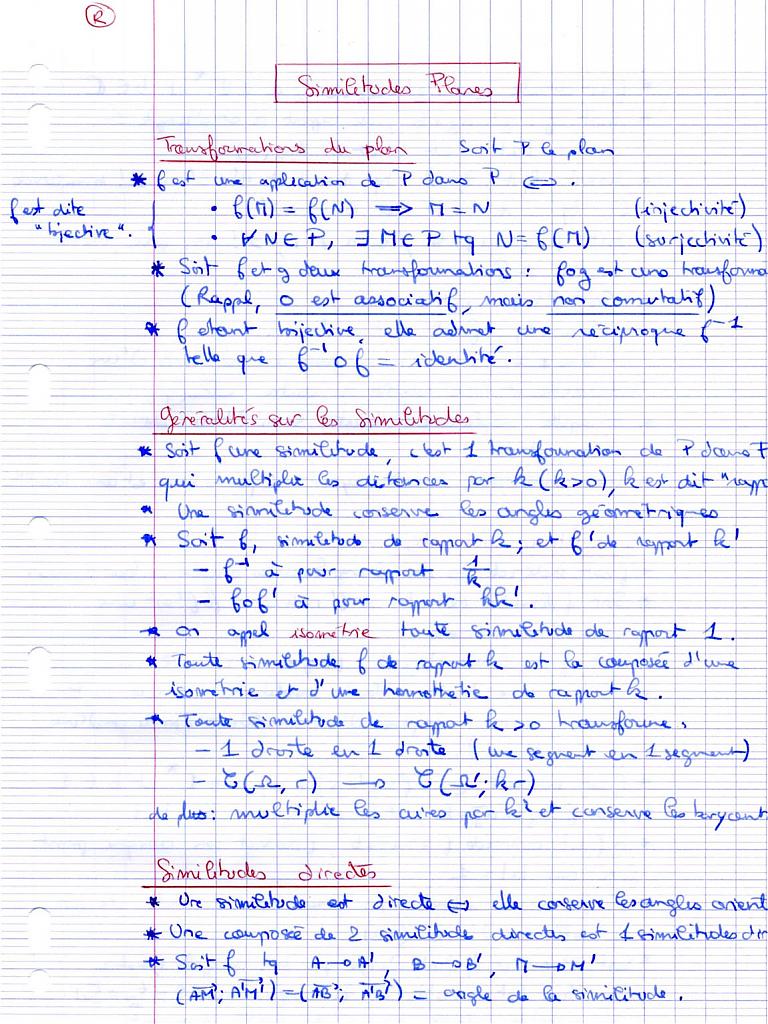 R
Similitudes Planes
Transformations du plan Soit P le plan
* f est une application de P dans P ⟺ .
f est dite "bijective".
• f(M) = f(N) ⟹ M = N (injectivité)
• ∀ N ∈ P, ∃ M ∈ P tq N = f(M) (surjectivité)
* Soit f et g deux transformations : fog est une transforma
(Rappl, o est associatif, mais non comutatif)
* f etant bijective, elle admet une réciproque f⁻¹
telle que f⁻¹ o f = identité.
généralités sur les Similitudes
* Soit f une similitude, c'est 1 transformation de P dans P
qui multiplie les distances par k (k>0), k est dit "rapp
* Une similitude conserve les angles géometriques
* Soit f, similitude de rapport k ; et f' de rapport k'
– f⁻¹ à pour rapport 1/k
– fof' à pour rapport kk'.
* on appel isométrie toute similitude de rapport 1.
* Toute similitude f de rapport k est la composée d'une
isométrie et d'une homothetie de rapport k.
* Toute similitude de rapport k > 0 transforme :
– 1 droite en 1 droite (une segment en 1 segment)
– C(Ω, r) ⟶ C(Ω'; kr)
de plus : multiplie les aires par k² et conserve les barycent
Similitudes directes
* Une similitude est directe ⟺ elle conserve les angles orient
* Une composée de 2 similitude directes est 1 similitudes dir
* Soit f tq A → A', B → B', M → M'
(AM⃗ ; A'M'⃗) = (AB⃗ ; A'B'⃗) = angle de la similitude.